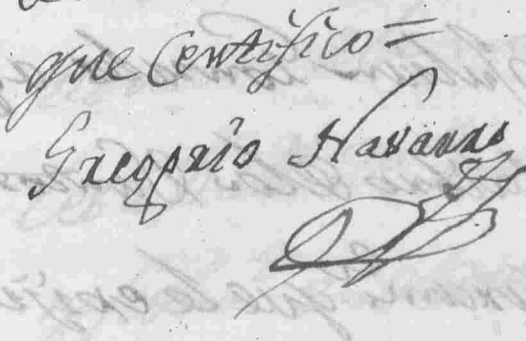 que Certifico =
Gregorio Navarro